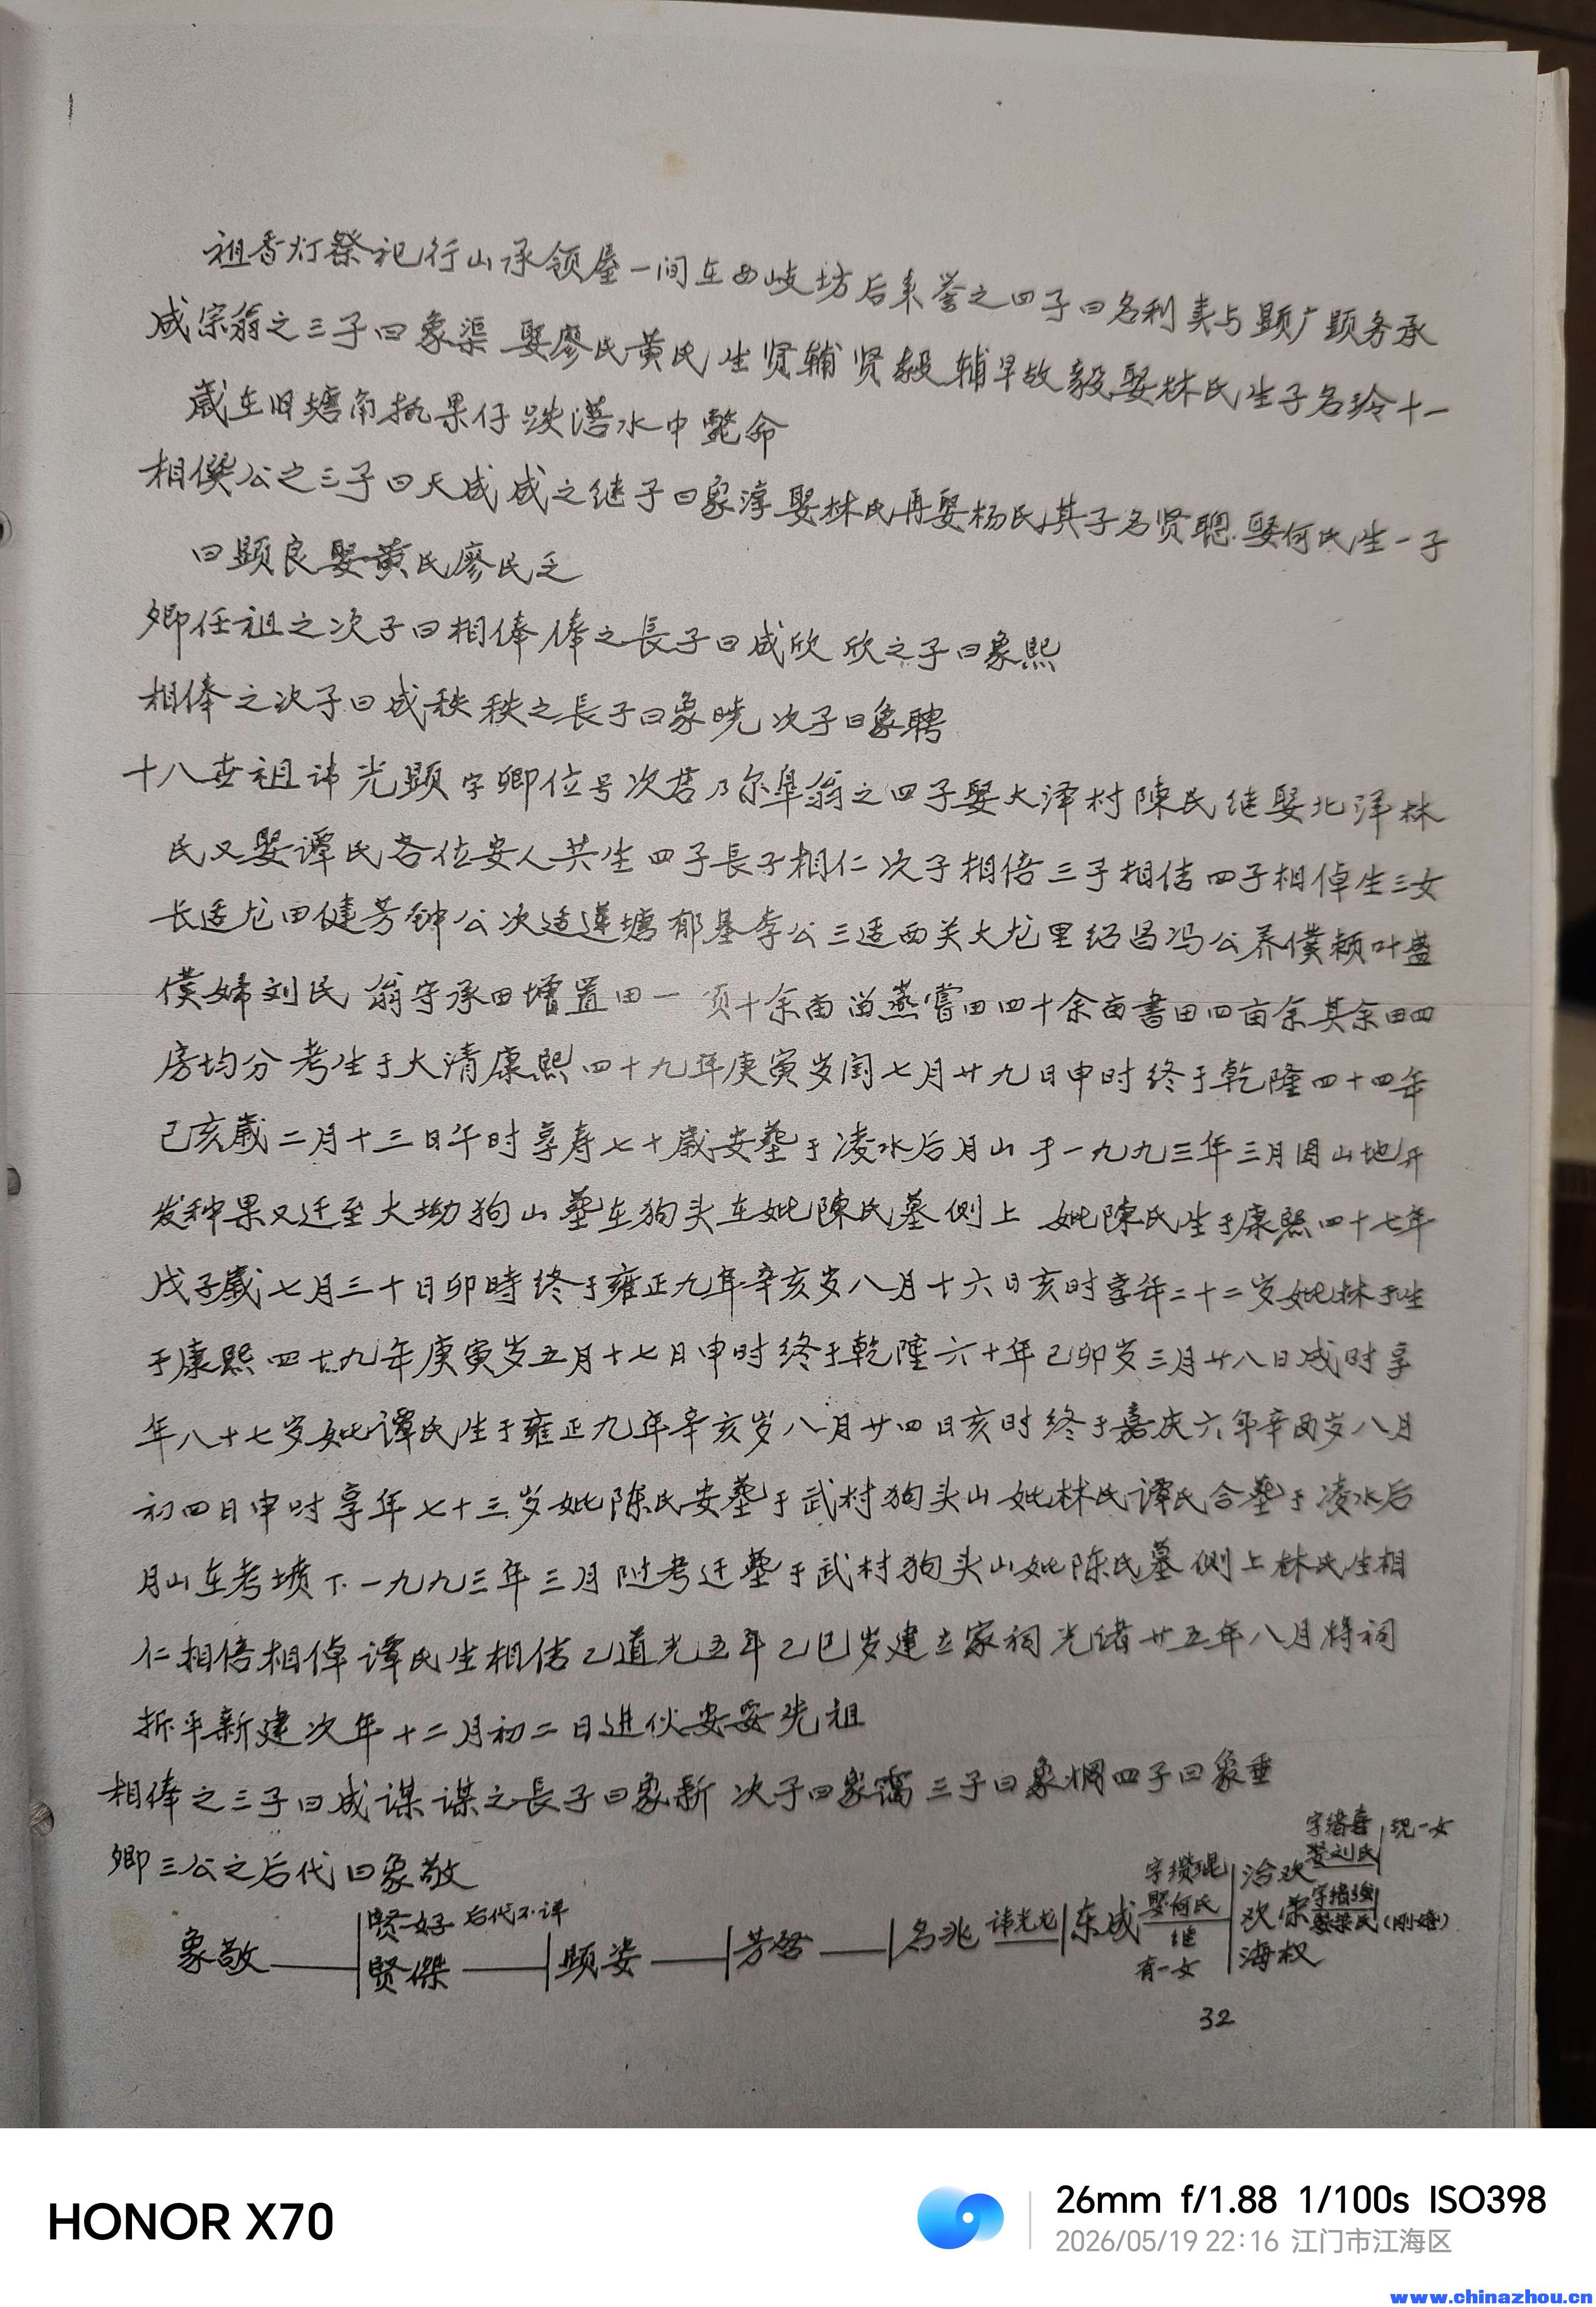 祖香灯祭祀行山承领屋一间在西岐坊后来誉之四子曰名利卖与显广顕务承
成宗翁之三子曰象渠 娶廖氏黄氏生贤辅贤毅辅早故毅娶林氏生子名玲十一
岁在旧塘角执果仔跌落水中毙命
相僎公之三子曰天成成之继子曰象淳娶林氏再娶杨氏其子名贤聰娶何氏生一子
曰顕良娶黄氏廖氏乏
卿任祖之次子曰相俸俸之長子曰成欣欣之子曰象熙
相俸之次子曰成秩秩之長子曰象晓次子曰象聘
十八世祖讳光顕字卿位号次君乃尔阜翁之四子娶大泽村陳氏继娶北洋林
氏又娶谭氏各位安人共生四子長子相仁次子相倍三子相信四子相倬生三女
长适龙田健芳钟公次适莲塘郁基李公三适西关大龙里绍昌冯公养僕颖叶盛
僕婦刘氏 翁守承田增置田一 顷十余亩留蒸嘗田四十余亩書田四亩余其余田四
房均分考生于大清康熙四十九年庚寅岁闰七月廿九日申时终于乾隆四十四年
己亥歲二月十三日午时享寿七十歲安塟于凌水后月山于一九九三年三月因山地开
发种果又迁至大坳狗山塟在狗头在妣陳氏墓侧上 妣陳氏生于康熙四十七年
戊子歲七月三十日卯時终于雍正九年辛亥岁八月十六日亥时享年二十二岁妣林氏生
于康熙四十九年庚寅岁五月十七日申时终于乾隆六十年己卯岁三月廿八日成时享
年八十七岁妣谭氏生于雍正九年辛亥岁八月廿四日亥时终于嘉庆六年辛酉岁八月
初四日申时享年七十三岁妣陈氏安塟于武村狗头山妣林氏谭氏合塟于凌水后
月山在考坟下一九九三年三月随考迁塟于武村狗头山妣陈氏墓侧上林氏生相
仁相倍相倬谭氏生相信乙道光五年乙巳岁建立家祠光绪廿五年八月将祠
拆平新建次年十二月初二日进伙安妥先祖
相俸之三子曰成谋谋之長子曰象新 次子曰象霭三子曰象烱四子曰象垂
卿三公之后代曰象敬
象敬 贤好 后代不详
贤傑 顕姿 芳啓 名兆 讳光龙 东成 字缵琨 娶何氏 继 有一女
洽欢 字绪喜 娶刘氏 现一女
欢荣 字绪强 娶梁氏(刚婚)
海权
32
HONOR X70
26mm f/1.88 1/100s ISO398
2026/05/19 22:16 江门市江海区
www.chinazhou.cn